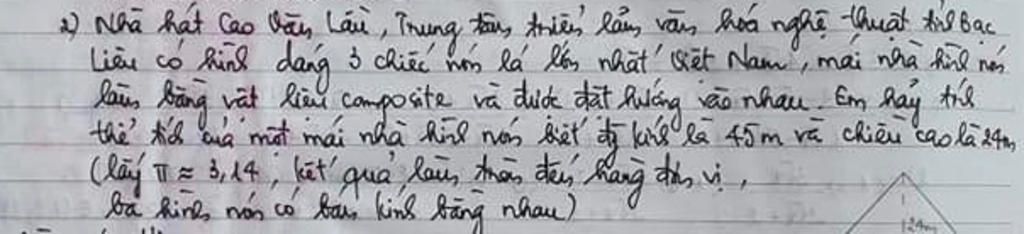 2) Nhà hát Cao Văn Lầu, Trung tâm triển lãm văn hoá nghệ thuật tỉnh Bạc
Liêu có hình dáng 3 chiếc nón lá lớn nhất Việt Nam, mái nhà hình nón
làm bằng vật liệu composite và được đặt hướng vào nhau. Em hãy tính
thể tích của một mái nhà hình nón biết đg kính là 45m và chiều cao là 24m
(lấy π ≈ 3,14, kết quả làm tròn đến hàng đơn vị,
ba hình nón có bán kính bằng nhau)
24m